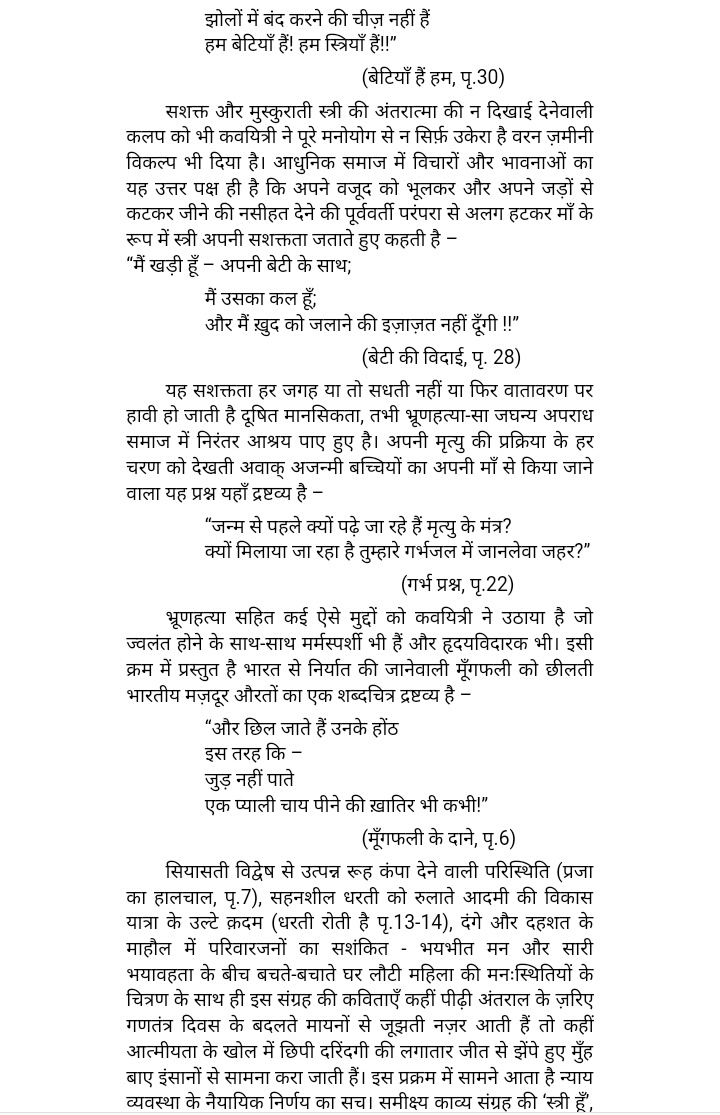 झोलों में बंद करने की चीज़ नहीं हैं
हम बेटियाँ हैं! हम स्त्रियाँ हैं!!”
(बेटियाँ हैं हम, पृ.30)
सशक्त और मुस्कुराती स्त्री की अंतरात्मा की न दिखाई देनेवाली
कलप को भी कवयित्री ने पूरे मनोयोग से न सिर्फ़ उकेरा है वरन ज़मीनी
विकल्प भी दिया है। आधुनिक समाज में विचारों और भावनाओं का
यह उत्तर पक्ष ही है कि अपने वजूद को भूलकर और अपने जड़ों से
कटकर जीने की नसीहत देने की पूर्ववर्ती परंपरा से अलग हटकर माँ के
रूप में स्त्री अपनी सशक्तता जताते हुए कहती है –
“मैं खड़ी हूँ – अपनी बेटी के साथ;
मैं उसका कल हूँ;
और मैं ख़ुद को जलाने की इज़ाज़त नहीं दूँगी !!”
(बेटी की विदाई, पृ. 28)
यह सशक्तता हर जगह या तो सधती नहीं या फिर वातावरण पर
हावी हो जाती है दूषित मानसिकता, तभी भ्रूणहत्या-सा जघन्य अपराध
समाज में निरंतर आश्रय पाए हुए है। अपनी मृत्यु की प्रक्रिया के हर
चरण को देखती अवाक् अजन्मी बच्चियों का अपनी माँ से किया जाने
वाला यह प्रश्न यहाँ द्रष्टव्य है –
“जन्म से पहले क्यों पढ़े जा रहे हैं मृत्यु के मंत्र?
क्यों मिलाया जा रहा है तुम्हारे गर्भजल में जानलेवा जहर?”
(गर्भ प्रश्न, पृ.22)
भ्रूणहत्या सहित कई ऐसे मुद्दों को कवयित्री ने उठाया है जो
ज्वलंत होने के साथ-साथ मर्मस्पर्शी भी हैं और हृदयविदारक भी। इसी
क्रम में प्रस्तुत है भारत से निर्यात की जानेवाली मूँगफली को छीलती
भारतीय मज़दूर औरतों का एक शब्दचित्र द्रष्टव्य है –
“और छिल जाते हैं उनके होंठ
इस तरह कि –
जुड़ नहीं पाते
एक प्याली चाय पीने की ख़ातिर भी कभी!”
(मूँगफली के दाने, पृ.6)
सियासती विद्वेष से उत्पन्न रूह कंपा देने वाली परिस्थिति (प्रजा
का हालचाल, पृ.7), सहनशील धरती को रुलाते आदमी की विकास
यात्रा के उल्टे क़दम (धरती रोती है पृ.13-14), दंगे और दहशत के
माहौल में परिवारजनों का सशंकित - भयभीत मन और सारी
भयावहता के बीच बचते-बचाते घर लौटी महिला की मनःस्थितियों के
चित्रण के साथ ही इस संग्रह की कविताएँ कहीं पीढ़ी अंतराल के ज़रिए
गणतंत्र दिवस के बदलते मायनों से जूझती नज़र आती हैं तो कहीं
आत्मीयता के खोल में छिपी दरिंदगी की लगातार जीत से झेंपे हुए मुँह
बाए इंसानों से सामना करा जाती हैं। इस प्रक्रम में सामने आता है न्याय
व्यवस्था के नैयायिक निर्णय का सच। समीक्ष्य काव्य संग्रह की ‘स्त्री हूँ’,